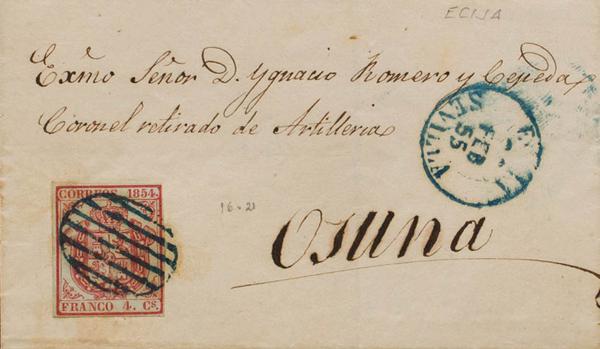 ECIJA
Exmo Señor D. Ygnacio Romero y Cepeda
Coronel retirado de Artilleria
SEVILLA
FEB
55
CORREOS 1854.
16-21
Osuna
FRANCO 4. Cs.